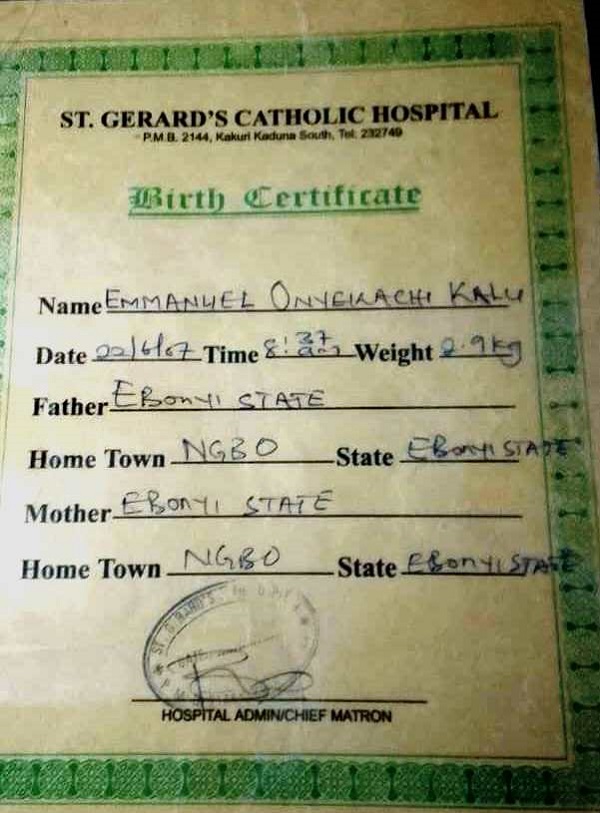 ST. GERARD'S CATHOLIC HOSPITAL
P.M.B. 2144, Kakuri Kaduna South, Tel: 232749
Birth Certificate
Name EMMANUEL ONYEKACHI KALU
Date 22/6/07 Time 8:37 am Weight 2.9kg
Father EBONYI STATE
Home Town NGBO State EBONYI STATE
Mother EBONYI STATE
Home Town NGBO State EBONYI STATE
ST. GERARD'S
HOSPITAL ADMIN/CHIEF MATRON